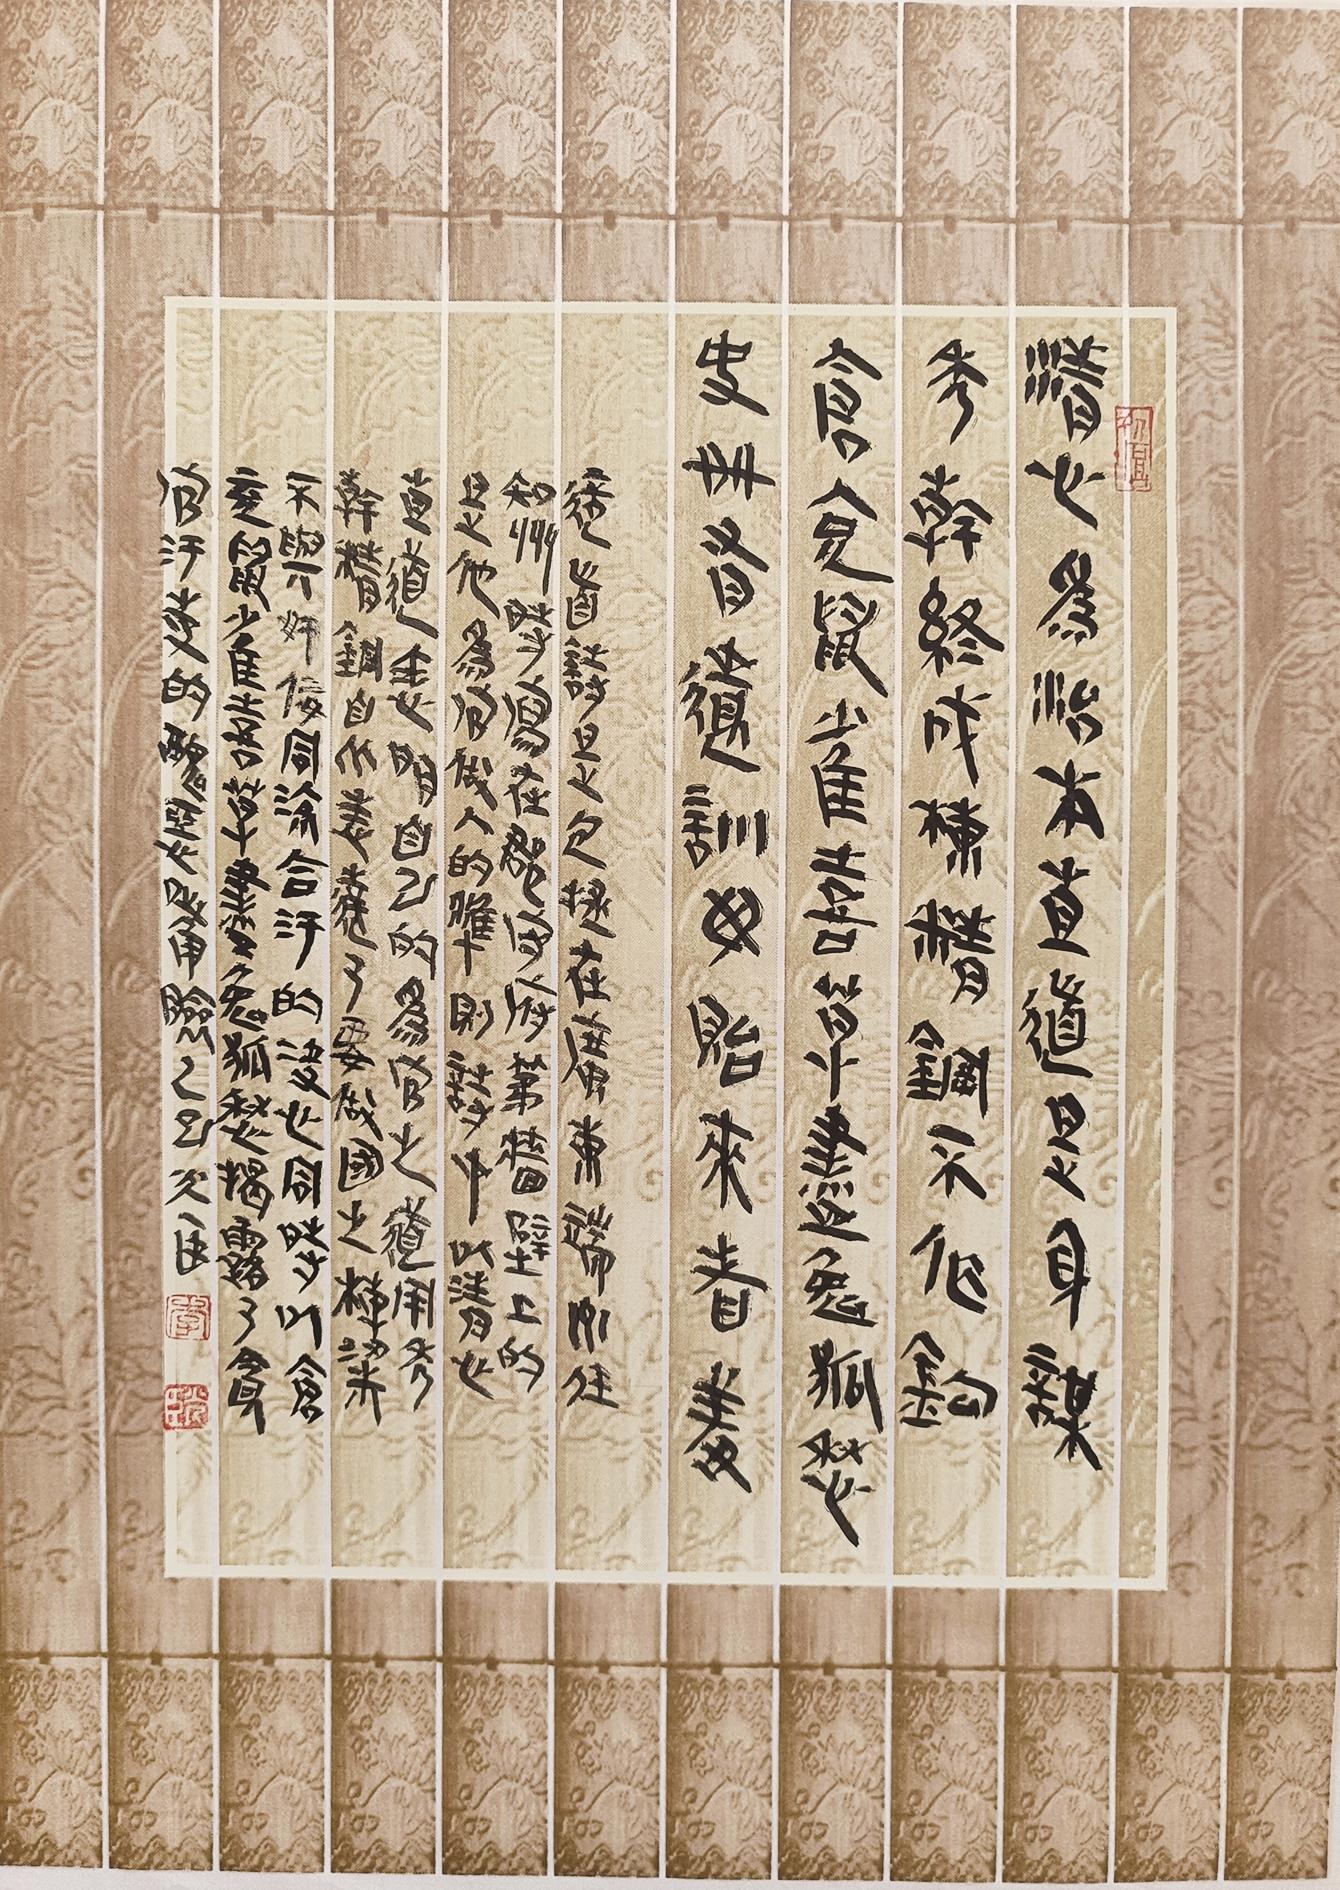 清心為治本直道是身謀
秀幹終成棟精鋼不作鈎
倉充鼠雀喜草盡兔狐愁
史冊有遺訓毋貽來者羞
這首詩是包拯在廣東端州任
知州時寫在郡府舊牆壁上的
是他為官做人的準則詩中以清心
直道表明自己的為官之道用秀
幹精鋼自代表達了要做國之棟梁
不與奸佞同流合汙的決心同時以倉
充鼠雀喜草盡兔狐愁揭露了貪
官汙吏的醜惡 乙巳